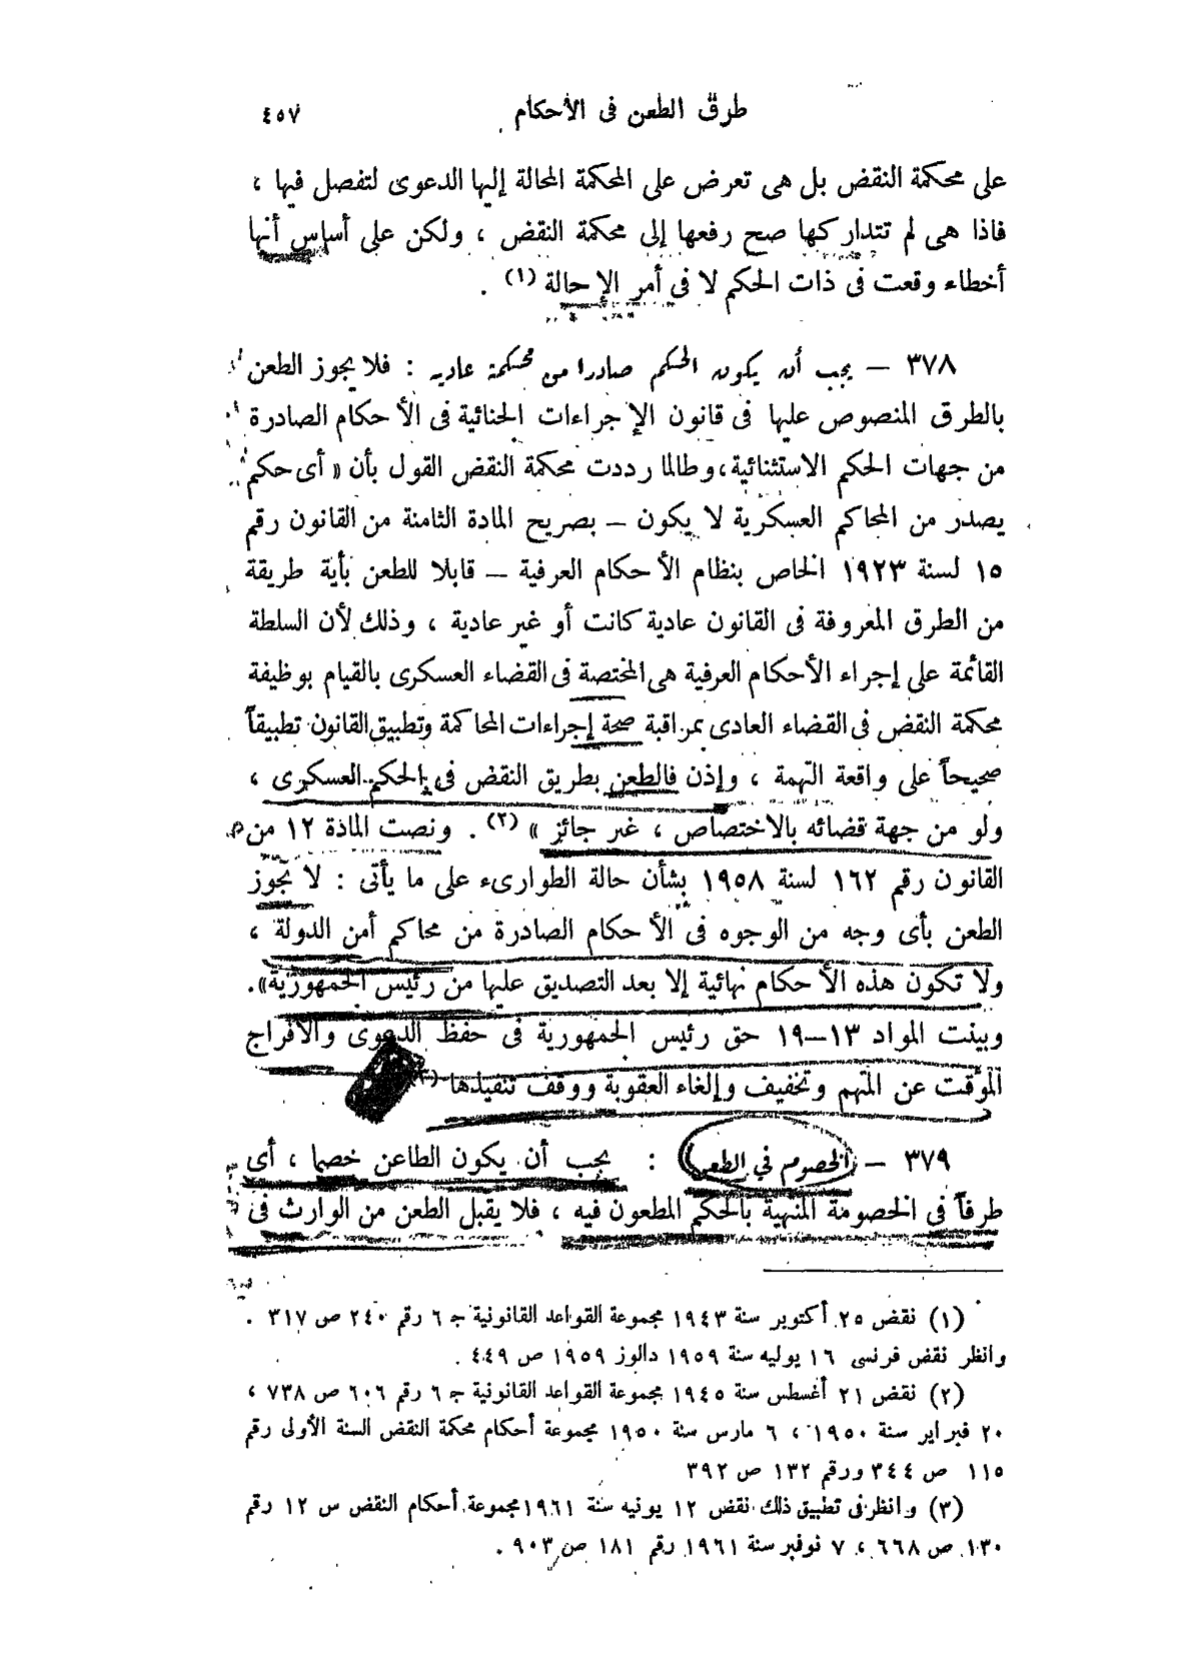 طرق الطعن فى الأحكام ٤٥٧
على محكمة النقض بل هى تعرض على المحكمة المحالة إليها الدعوى لتفصل فيها ،
فاذا هى لم تتداركها صح رفعها إلى محكمة النقض ، ولكن على أساس أنها
أخطاء وقعت فى ذات الحكم لا فى أمر الإحالة (١) .
٣٧٨ – يجب أن يكون الحكم صادرا من محكمة عادية : فلا يجوز الطعن
بالطرق المنصوص عليها فى قانون الإجراءات الجنائية فى الأحكام الصادرة
من جهات الحكم الاستثنائية ، وطالما رددت محكمة النقض القول بأن « أى حكم
يصدر من المحاكم العسكرية لا يكون – بصريح المادة الثامنة من القانون رقم
١٥ لسنة ١٩٢٣ الخاص بنظام الأحكام العرفية – قابلا للطعن بأية طريقة
من الطرق المعروفة فى القانون عادية كانت أو غير عادية ، وذلك لأن السلطة
القائمة على إجراء الأحكام العرفية هى المختصة فى القضاء العسكرى بالقيام بوظيفة
محكمة النقض فى القضاء العادى بمراقبة صحة إجراءات المحاكمة وتطبيق القانون تطبيقاً
صحيحاً على واقعة التهمة ، وإذن فالطعن بطريق النقض فى الحكم العسكرى ،
ولو من جهة قضائه بالاختصاص ، غير جائز » (٢) . ونصت المادة ١٢ من
القانون رقم ١٦٢ لسنة ١٩٥٨ بشأن حالة الطوارىء على ما يأتى : لا يجوز
الطعن بأى وجه من الوجوه فى الأحكام الصادرة من محاكم أمن الدولة ،
ولا تكون هذه الأحكام نهائية إلا بعد التصديق عليها من رئيس الجمهورية».
وبينت المواد ١٣–١٩ حق رئيس الجمهورية فى حفظ الدعوى والافراج
المؤقت عن المتهم وتخفيف وإلغاء العقوبة ووقف تنفيذها (٣)
٣٧٩ – الخصوم في الطعن : يجب أن يكون الطاعن خصما ، أى
طرفاً فى الخصومة المنهية بالحكم المطعون فيه ، فلا يقبل الطعن من الوارث فى
(١) نقض ٢٥ أكتوبر سنة ١٩٤٣ مجموعة القواعد القانونية ج ٦ رقم ٢٤٠ ص ٣١٧ .
وانظر نقض فرنسى ١٦ يوليه سنة ١٩٥٩ دالوز ١٩٥٩ ص ٤٤٩ .
(٢) نقض ٢١ أغسطس سنة ١٩٤٥ مجموعة القواعد القانونية ج ٦ رقم ٦٠٦ ص ٧٣٨ ،
٢٠ فبراير سنة ١٩٥٠ ، ٦ مارس سنة ١٩٥٠ مجموعة أحكام محكمة النقض السنة الأولى رقم
١١٥ ص ٣٤٤ ورقم ١٣٢ ص ٣٩٢
(٣) وانظر فى تطبيق ذلك نقض ١٢ يونيه سنة ١٩٦١ مجموعة أحكام النقض س ١٢ رقم
١٣٠ ص ٦٦٨ ، ٧ نوفبر سنة ١٩٦١ رقم ١٨١ ص ٩٠٣ .